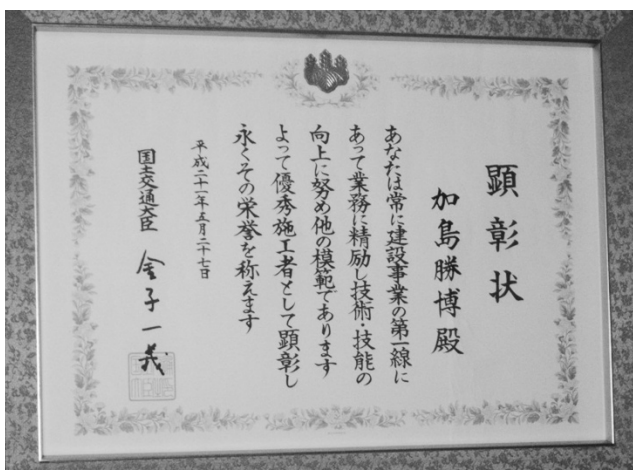 顕彰状
加島勝博殿
あなたは常に建設事業の第一線に
あって業務に精励し技術・技能の
向上に努め他の模範であります
よって優秀施工者として顕彰し
永くその栄誉を称えます
平成二十一年五月二十七日
国土交通大臣 金子一義